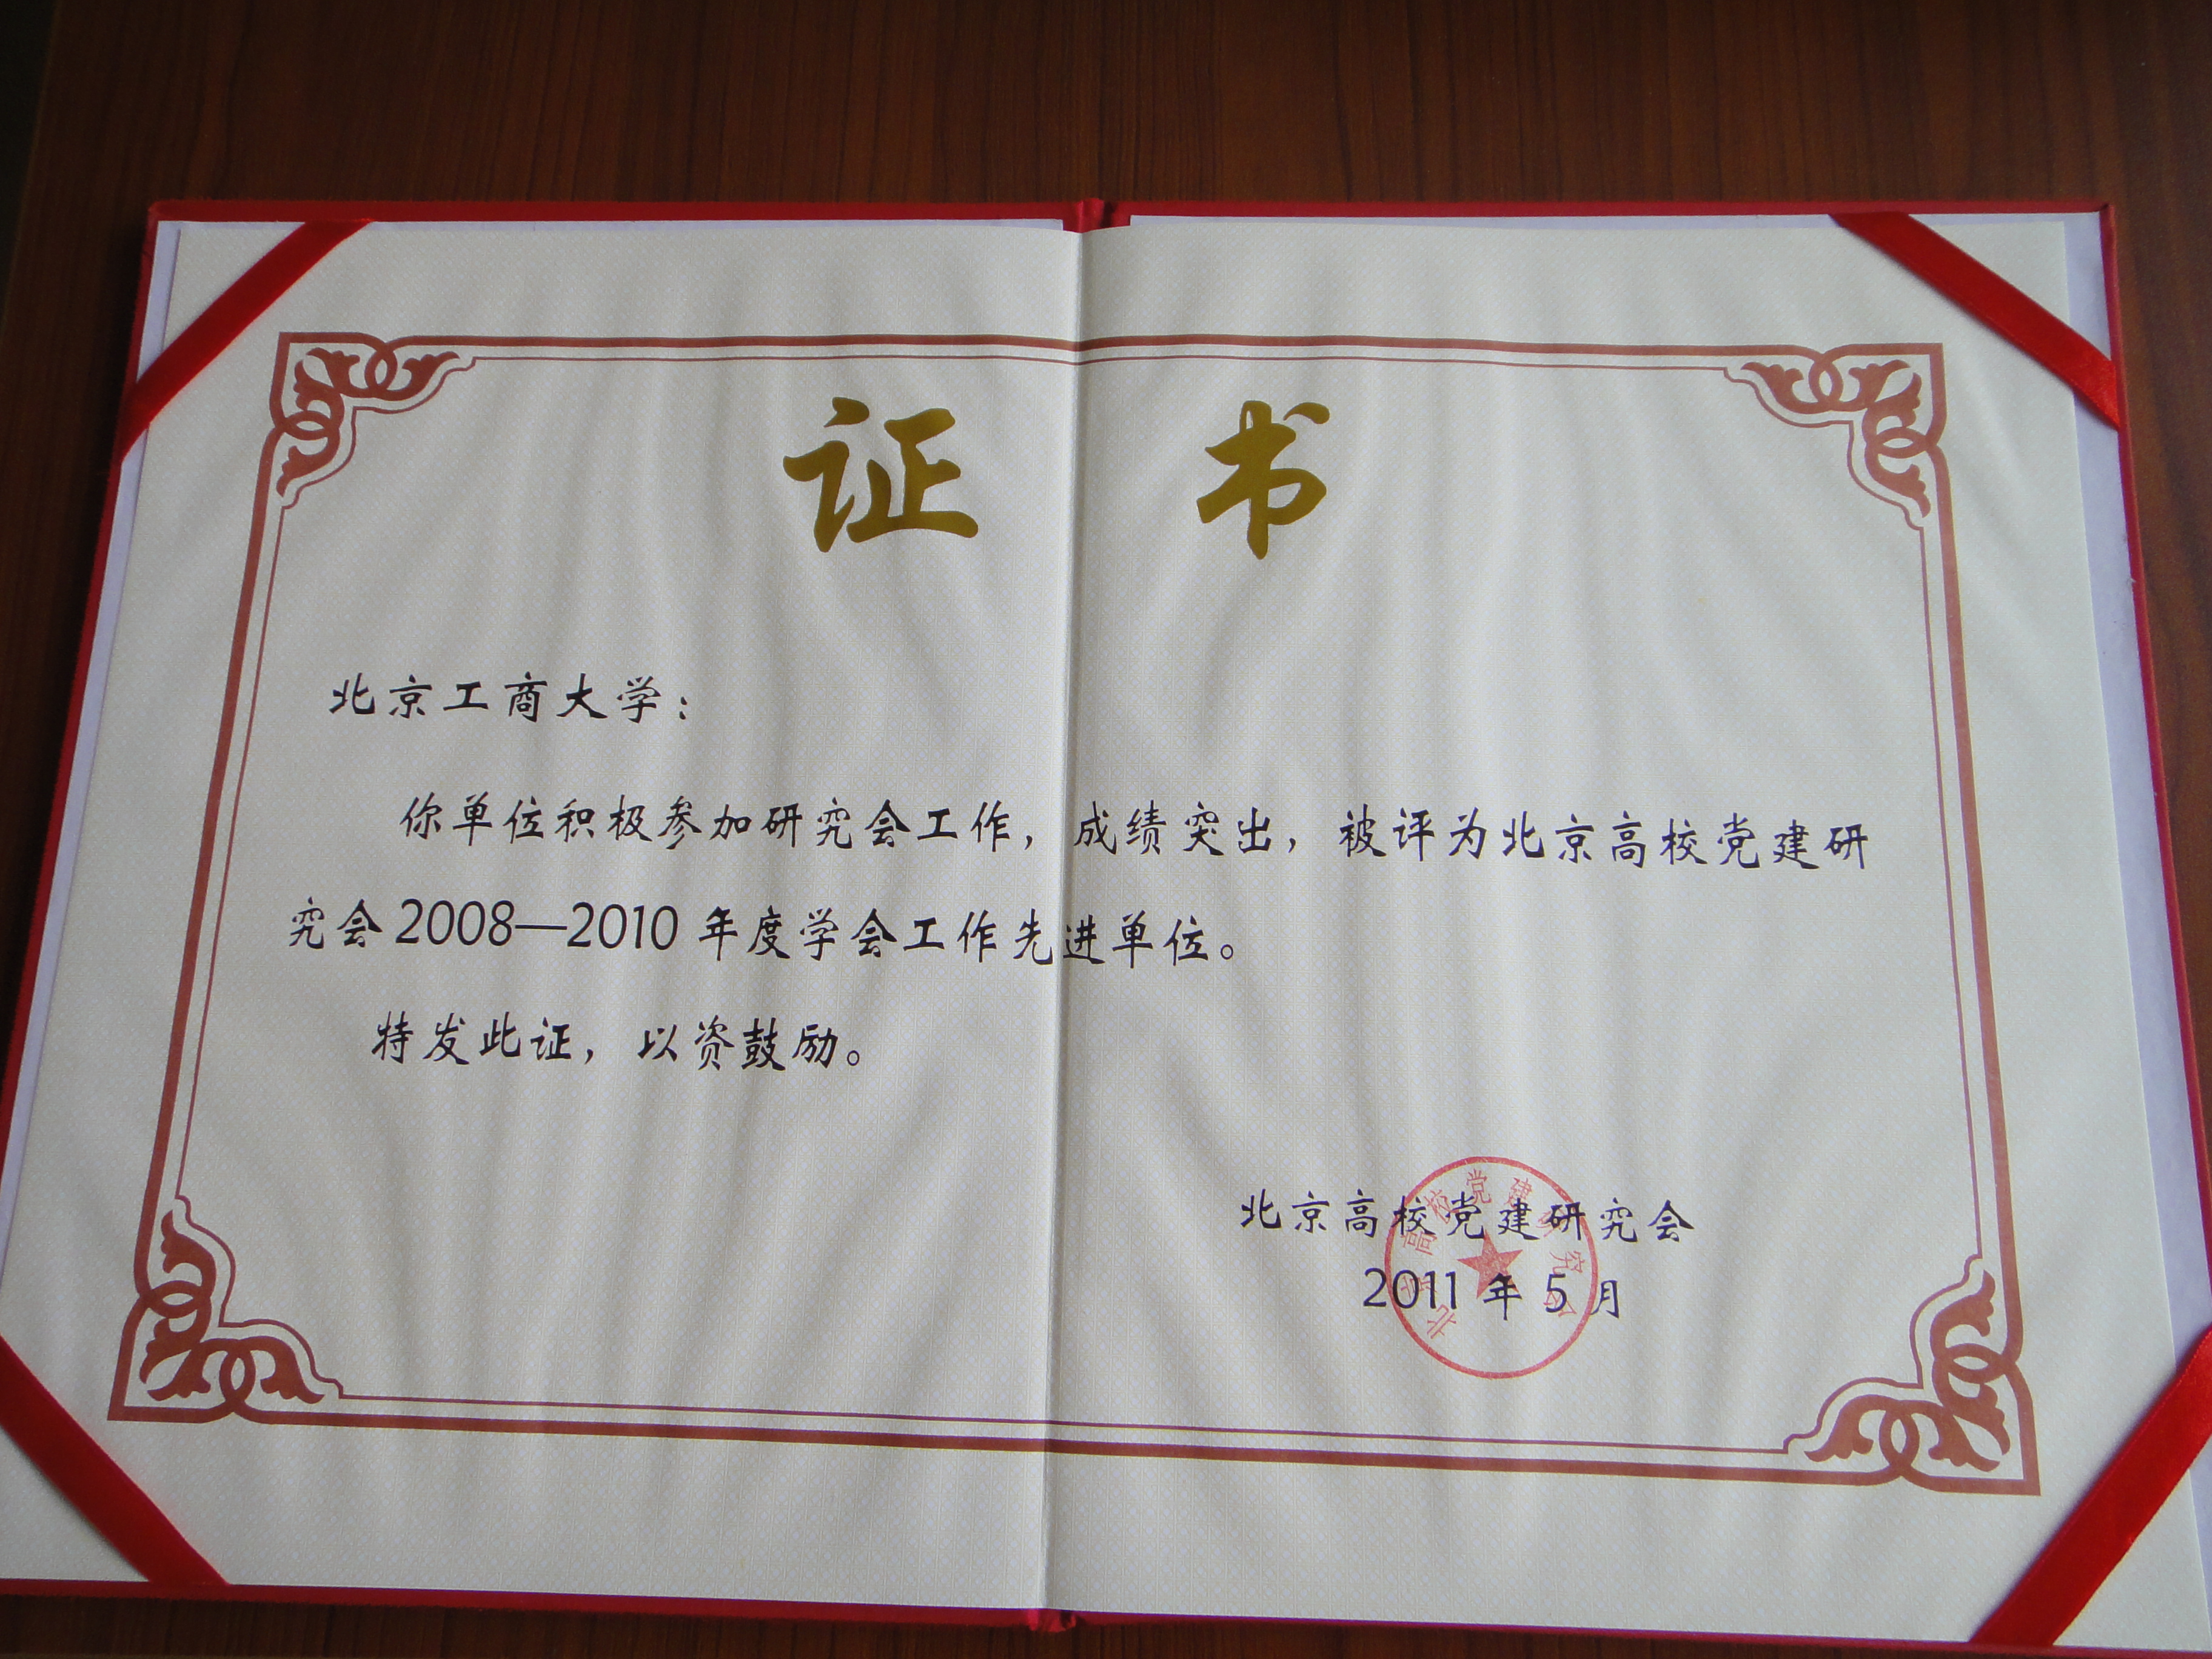 证 书
北京工商大学：
你单位积极参加研究会工作，成绩突出，被评为北京高校党建研
究会2008—2010年度学会工作先进单位。
特发此证，以资鼓励。
北京高校党建研究会
2011年5月
北京高校党建研究会